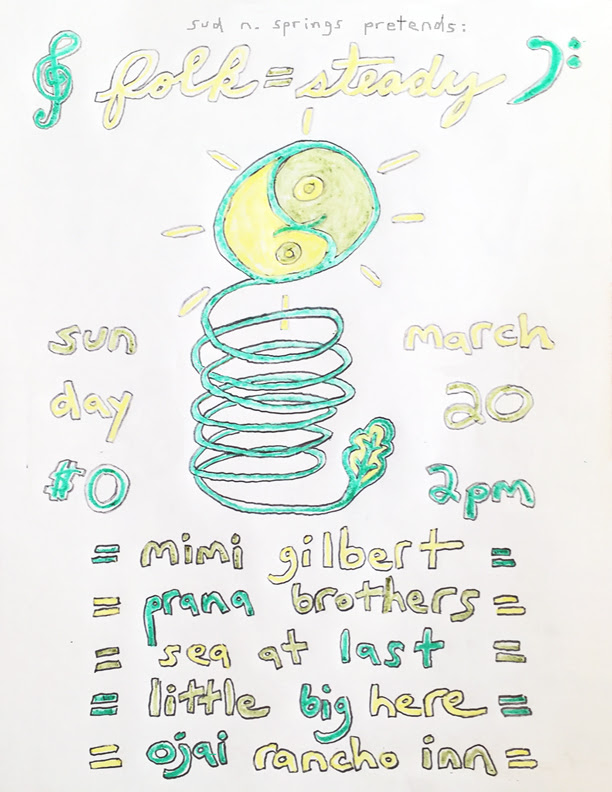 sud n. springs pretends:
folk = steady
sun
day
$0
march
20
2pm
= mimi gilbert =
= prana brothers =
= sea at last =
= little big here =
= ojai rancho inn =